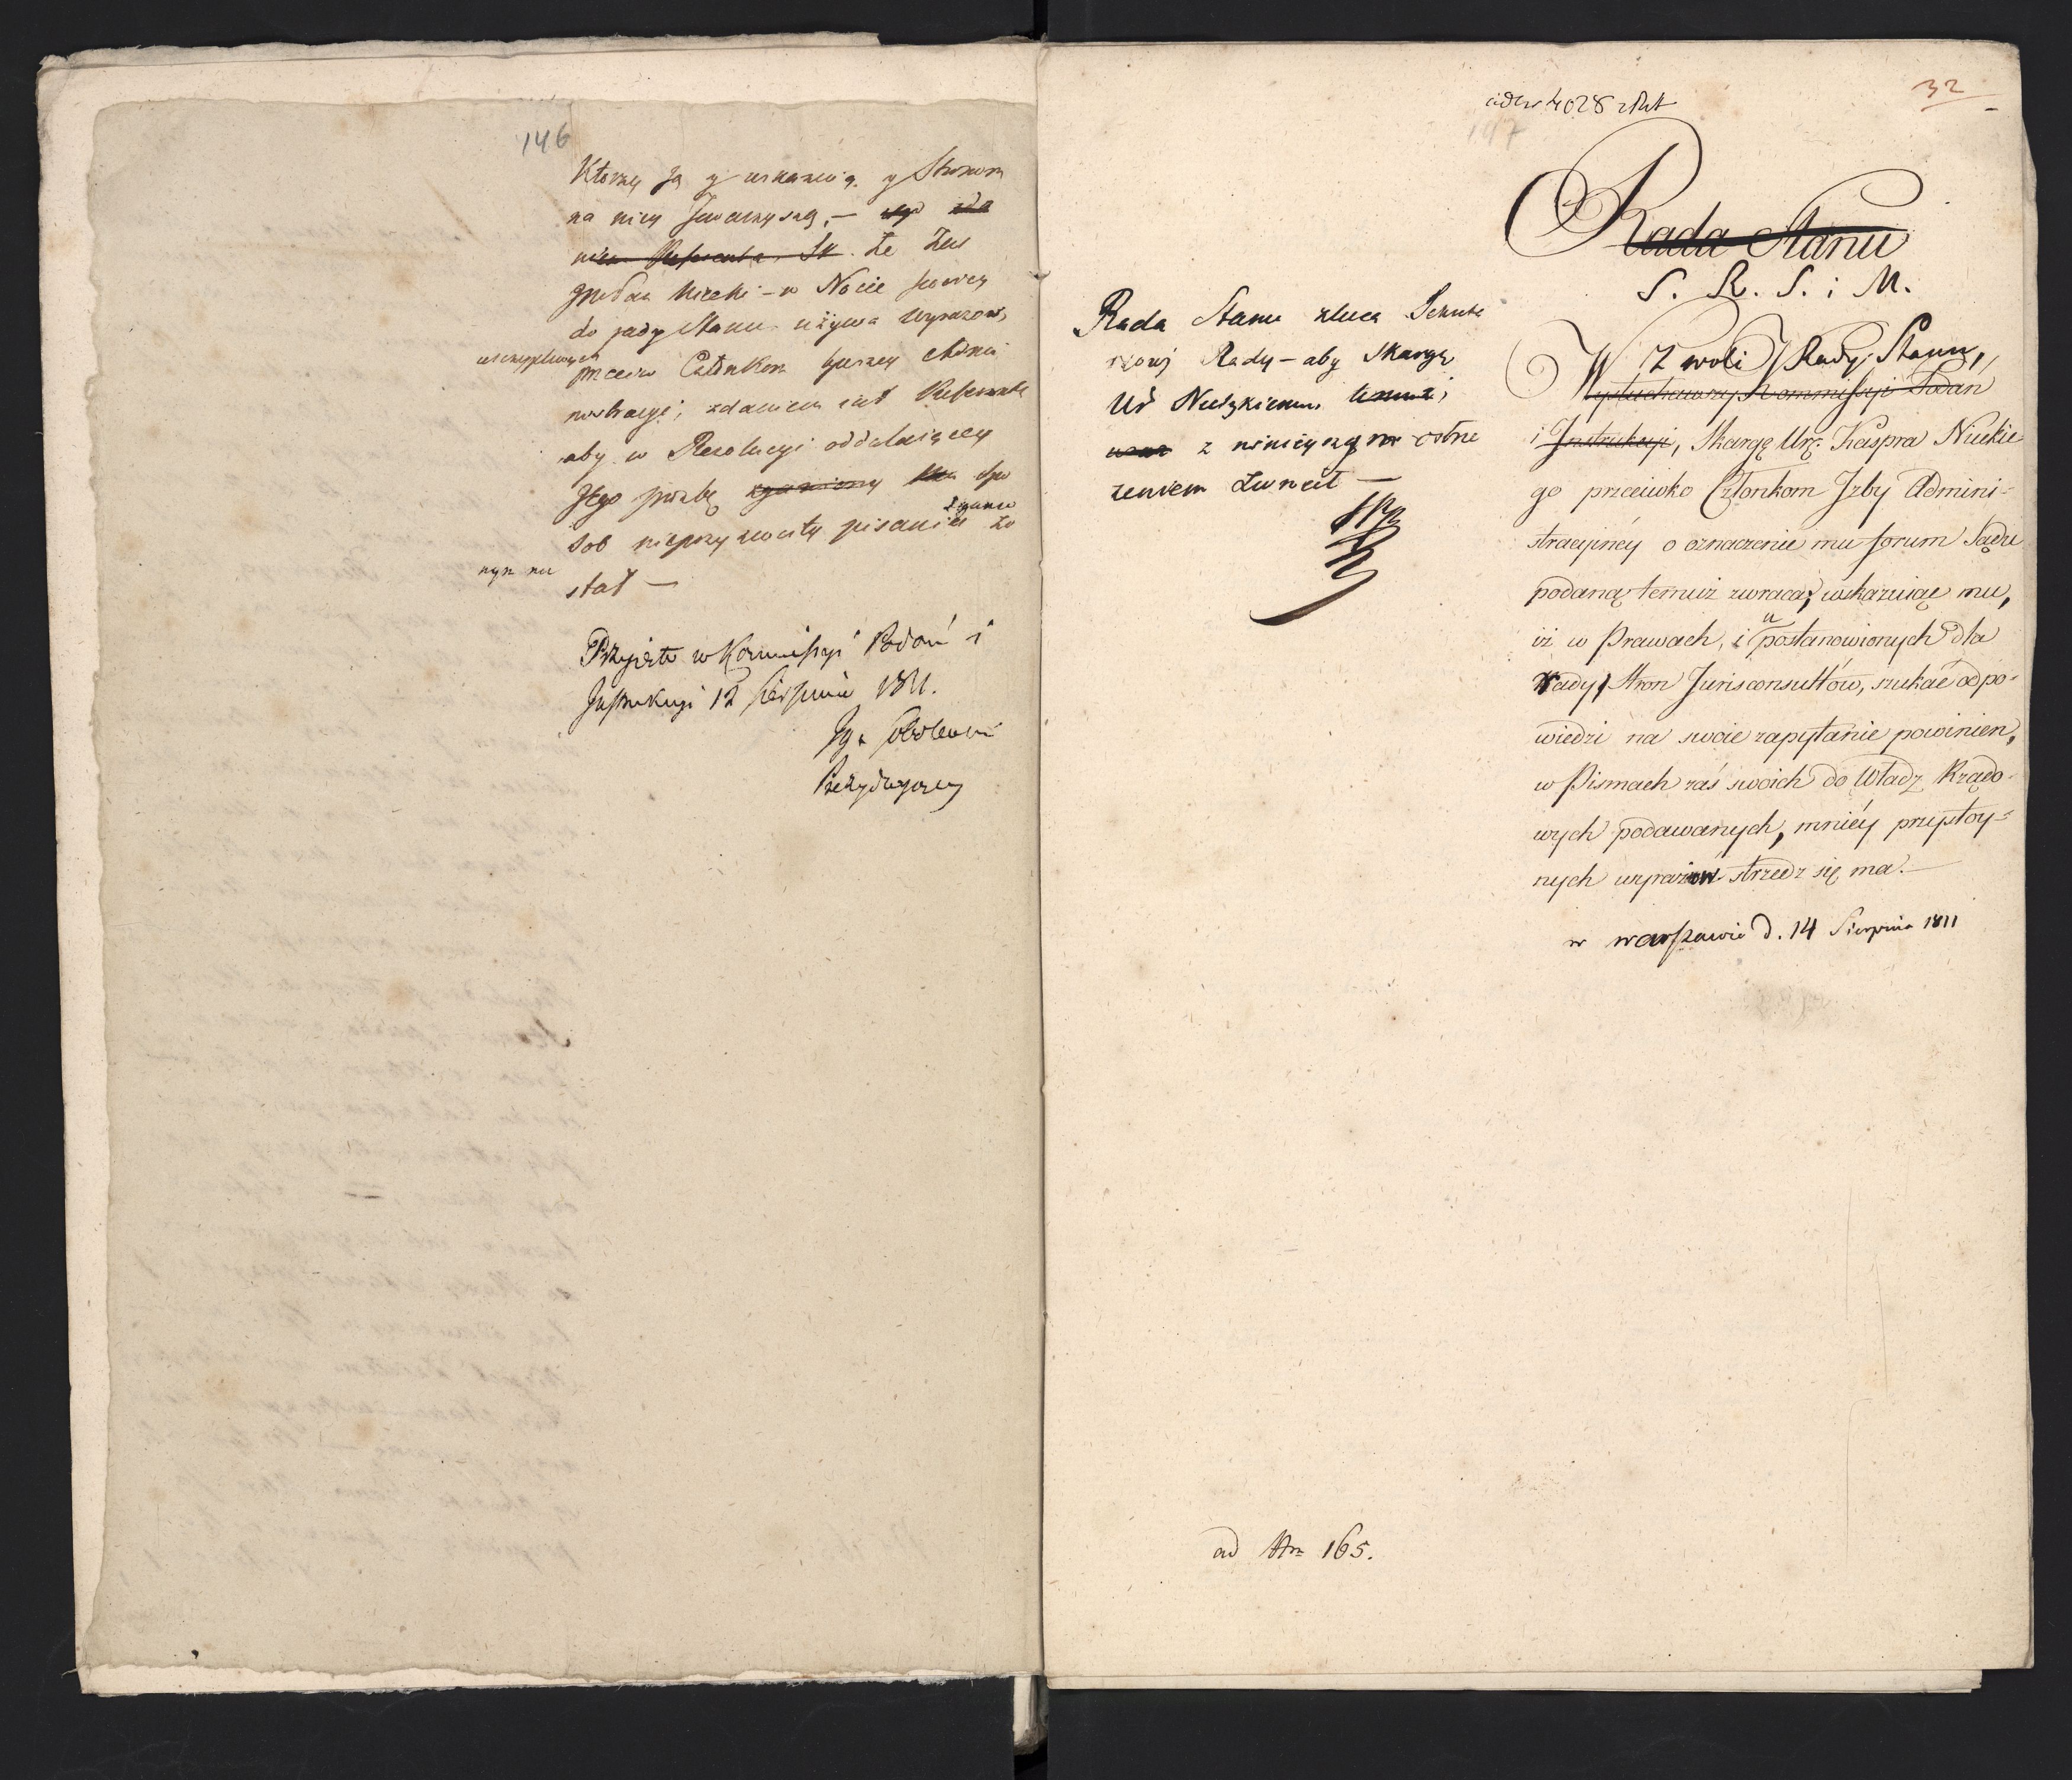 146
Ktorzy są y wskazuią y Stronom
na niey
Że
w Nocie swoiey
do rady Stanu używa wyrazow
uszczypliwych
przeciw Członkom Admi
nistracyi; zdaniem iest Referenta
aby w Rezolucyi oddalaiącey
Jego prośbę spo
sob nieprzyzwoity pisania
stał —
Przyięto w Kommissyi Podań i
Instrukcyi 12 Sierpnia 1811.
Ign Sobolewski
Prezyduiący
32
4028
147
Rada Stanu
S. R. S. i M.
Rada Stanu zleca Sekreta
rzowi Rady — aby Skargę
Ur Nieckiemu
z ninieyszym ostrze
żeniem zwrócił —
Z woli Rady Stanu,
Wysłuchawszy Kommissyi Podań
i Instrukcyi, Skargę Ur: Kaspra Nieckie
go przeciwko Członkom Izby Admini=
stracyiney o oznaczenie mu forum Sądu
podaną temuż zwraca; wskazuiąc mu,
iż w Prawach, i u postanowionych dla
rady Stron Jurisconsultów, szukać odpo=
wiedzi na swoie zapytanie powinien,
w Pismach zaś swoich do Władz Rządo=
wych podawanych, mniéy przystoy=
nych wyrazow strzedz się ma.—
w warszawie d. 14 Sierpnia 1811
ad Nrm 165.